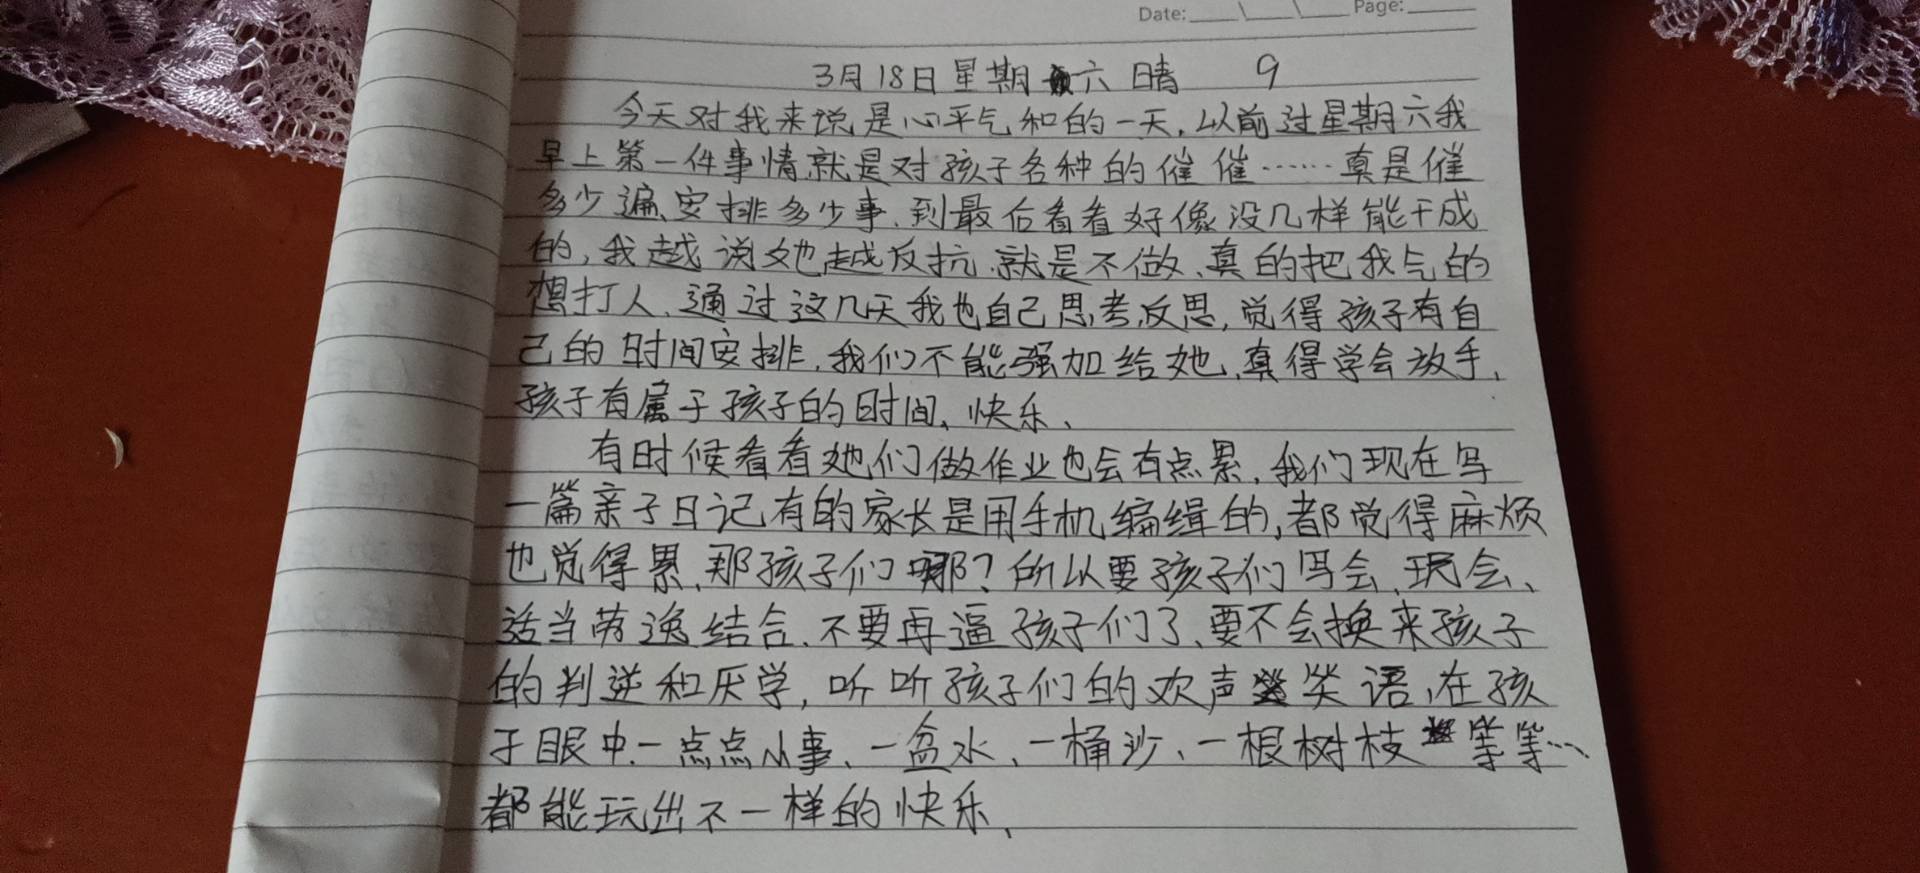 Date: Page:
3月18日星期六 晴 9
今天对我来说是心平气和的一天,以前过星期六我
早上第一件事情就是对孩子各种的催催……真是催
多少遍、安排多少事、到最后看看好像没几样能干成
的,我越说她越反抗、就是不做、真的把我气的
想打人、通过这几天我也自己思考反思,觉得孩子有自
己的时间安排,我们不能强加给她,真得学会放手、
孩子有属于孩子的时间、快乐、
有时候看看她们做作业也会有点累,我们现在写
一篇亲子日记有的家长是用手机编缉的,都觉得麻烦
也觉得累、那孩子们哪?所以要孩子们写会、玩会、
适当劳逸结合、不要再逼孩子们了、要不会换来孩子
的判逆和厌学,听听孩子们的欢声笑语,在孩
子眼中一点点小事、一盆水、一桶沙、一根树枝等等…
都能玩出不一样的快乐、